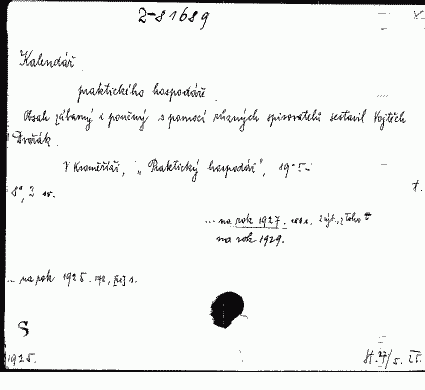 2-81689
Kalendář
praktického hospodáře.
Obsah zábavný i poučný s pomocí různých spisovatelů sestavil Vojtěch
Dvořák.
V Kroměříži, "Praktický hospodář", 19
8°, 2 sv.
... na rok 1927.
na rok 1929.
... na rok 1925. s.
S
1925.